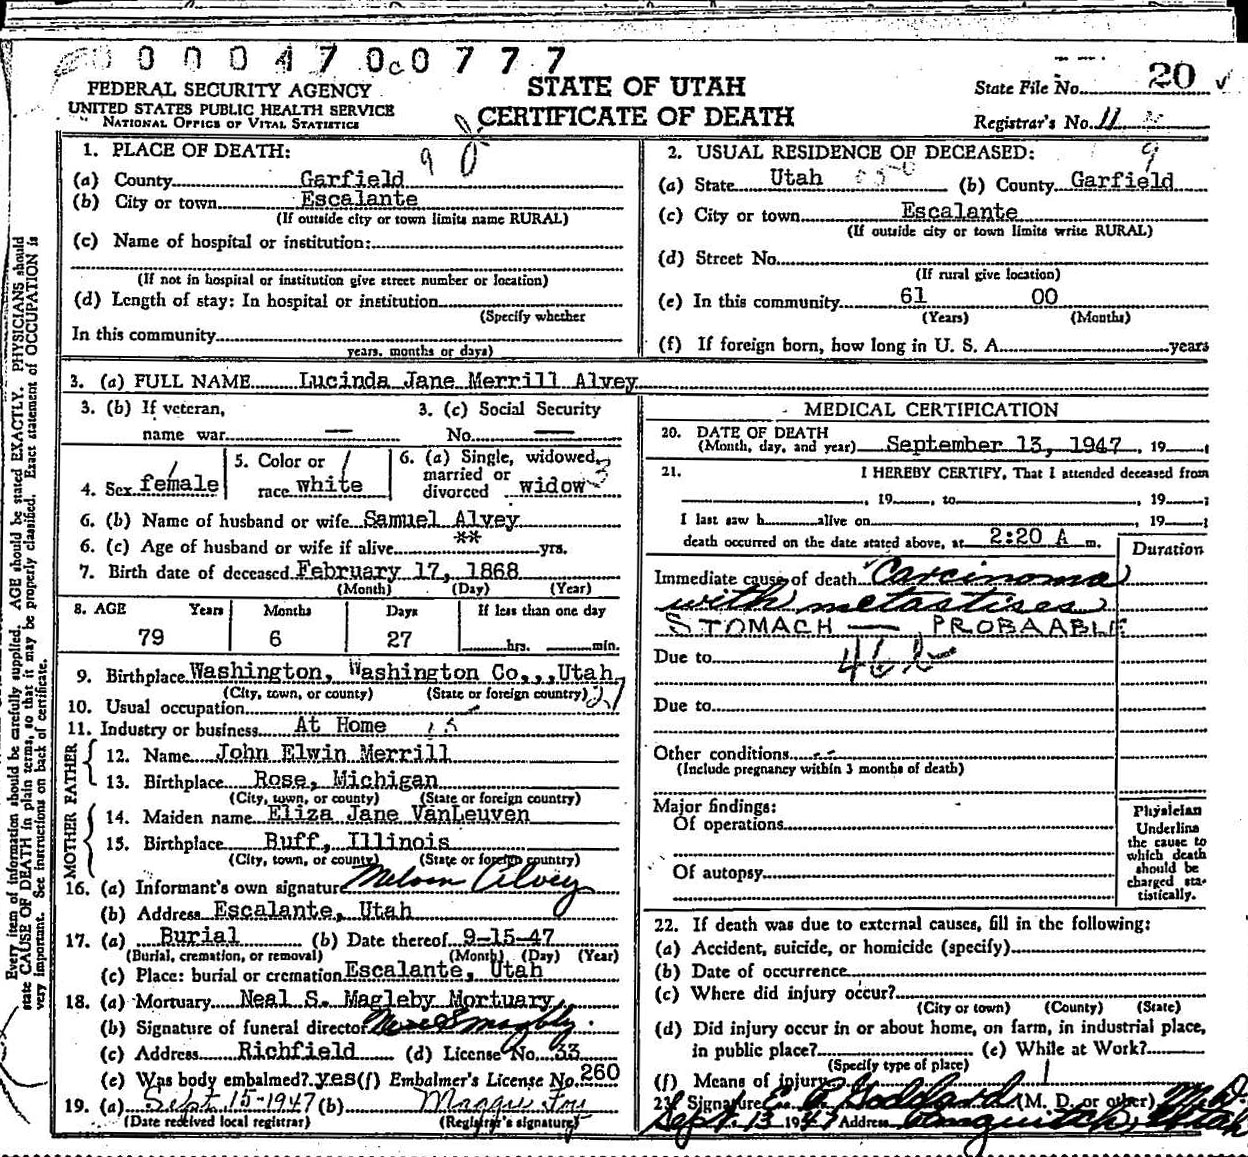 0 0 0 4 7 0 0 7 7 7
FEDERAL SECURITY AGENCY
UNITED STATES PUBLIC HEALTH SERVICE
NATIONAL OFFICE OF VITAL STATISTICS
STATE OF UTAH
CERTIFICATE OF DEATH
State File No. 20
Registrar's No. 11
1. PLACE OF DEATH:
(a) County Garfield
(b) City or town Escalante
(If outside city or town limits name RURAL)
(c) Name of hospital or institution:
(If not in hospital or institution give street number or location)
(d) Length of stay: In hospital or institution
(Specify whether
In this community
years, months or days)
2. USUAL RESIDENCE OF DECEASED:
(a) State Utah (b) County Garfield
(c) City or town Escalante
(If outside city or town limits write RURAL)
(d) Street No.
(If rural give location)
(e) In this community 61 00
(Years) (Months)
(f) If foreign born, how long in U. S. A. years
3. (a) FULL NAME Lucinda Jane Merrill Alvey
3. (b) If veteran,
name war —
3. (c) Social Security
No. —
4. Sex female
5. Color or
race white
6. (a) Single, widowed,
married or
divorced widow
6. (b) Name of husband or wife Samuel Alvey
6. (c) Age of husband or wife if alive ** yrs.
7. Birth date of deceased February 17, 1868
(Month) (Day) (Year)
8. AGE Years Months Days If less than one day
79 6 27 hrs. min.
9. Birthplace Washington, Washington Co.,,,Utah
(City, town, or county) (State or foreign country)
10. Usual occupation
11. Industry or business At Home
FATHER
12. Name John Elwin Merrill
13. Birthplace Rose, Michigan
(City, town, or county) (State or foreign country)
MOTHER
14. Maiden name Eliza Jane VanLeuven
15. Birthplace Buff, Illinois
(City, town, or county) (State or foreign country)
16. (a) Informant's own signature Nelson Alvey
(b) Address Escalante, Utah
17. (a) Burial (b) Date thereof 9-15-47
(Burial, cremation, or removal) (Month) (Day) (Year)
(c) Place: burial or cremation Escalante, Utah
18. (a) Mortuary Neal S. Magleby Mortuary
(b) Signature of funeral director Neal S Magleby
(c) Address Richfield (d) License No. 33
(e) Was body embalmed? yes (f) Embalmer's License No. 260
19. (a) Sept. 15-1947 (b)
(Date received local registrar) (Registrar's signature)
MEDICAL CERTIFICATION
20. DATE OF DEATH
(Month, day, and year) September 13, 1947, 19 ;
21. I HEREBY CERTIFY, That I attended deceased from
, 19 , to , 19 ;
I last saw h alive on , 19 ;
death occurred on the date stated above, at 2:20 A m.
Duration
Immediate cause of death Carcinoma
with metastises
STOMACH — PROBAABLE
Due to 46b
Due to
Other conditions
(Include pregnancy within 3 months of death)
Major findings:
Of operations
Of autopsy
Physician
Underline
the cause to
which death
should be
charged sta-
tistically.
22. If death was due to external causes, fill in the following:
(a) Accident, suicide, or homicide (specify)
(b) Date of occurrence
(c) Where did injury occur?
(City or town) (County) (State)
(d) Did injury occur in or about home, on farm, in industrial place,
in public place? (e) While at Work?
(Specify type of place)
(f) Means of injury
23. Signature Goddard (M. D. or other) M.D.
Sept. 13 1947 Address Panguitch, Utah
Every item of information should be carefully supplied. AGE should be stated EXACTLY. PHYSICIANS should
state CAUSE OF DEATH in plain terms, so that it may be properly classified. Exact statement of OCCUPATION is
very important. See instructions on back of certificate.